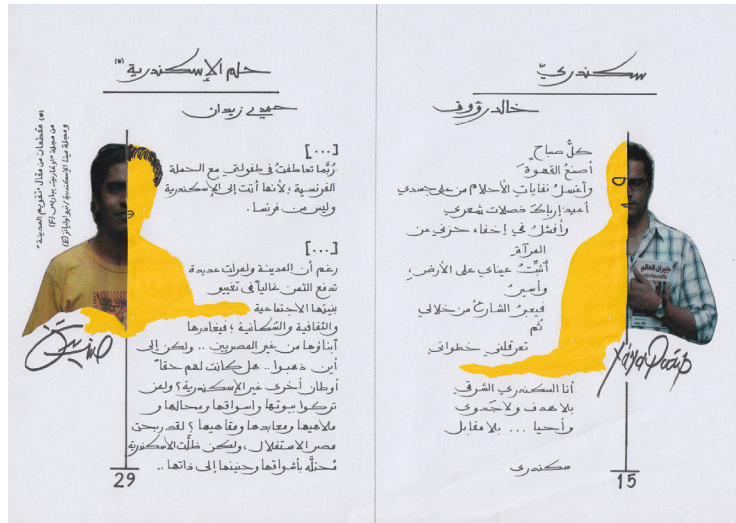 سكندريّ
خالد رؤوف
كلُّ صباحٍ
أصنعُ القهوةَ
وأغسلُ نفاياتِ الأحلام من على جسدي
أعيد إرباكَ خصلات شعري
وأفشلُ في إخفاء حزني عن
المرآة
أثبِّتُ عيناي على الأرضِ،
وأسيرُ
فيعبرُ الشارعُ من خلالي
ثم
تعرقلني خطواتي
أنا السكندري الشرقي
بلا هدف ولا جدوى
وأحيا ... بلا مقابل
سكندري
15
جيران العالم
حلم الإسكندرية (*)
حمدي زيدان
[...]
رُبَّما تعاطفتُ في طفولتي مع الحملة
الفرنسية ؛ لأنها أتت إلى الإسكندرية
وليس من فرنسا.
[...]
رغم أن المدينة ولمرات عديدة
تدفع الثمن غالياً في تغيير
بنيتها الاجتماعية
والثقافية والسُكانية ؛ فيغادرها
أبناؤها من غير المصريين .. ولكن إلى
أين ذهبوا .. هل كانت لهم حقاً
أوطان أخرى غير الإسكندرية ؟ ولمن
تركوا بيوتها وأسواقها ومحالها و
ملاهيها ومعابدها ومقاهيها ؟ لقد ربحت
مصر الاستقلال ، ولكن ظلَّت الاسكندرية
مُحتلَّه بأشواقها وحنينها إلى ذاتها ..
29
(*) مقطعان من مقال "تقويم المدينة"
من مجلة "أوغاريت بباريس (F)
ومجلة مينا الإسكندرية/نيو أورليانز (E)